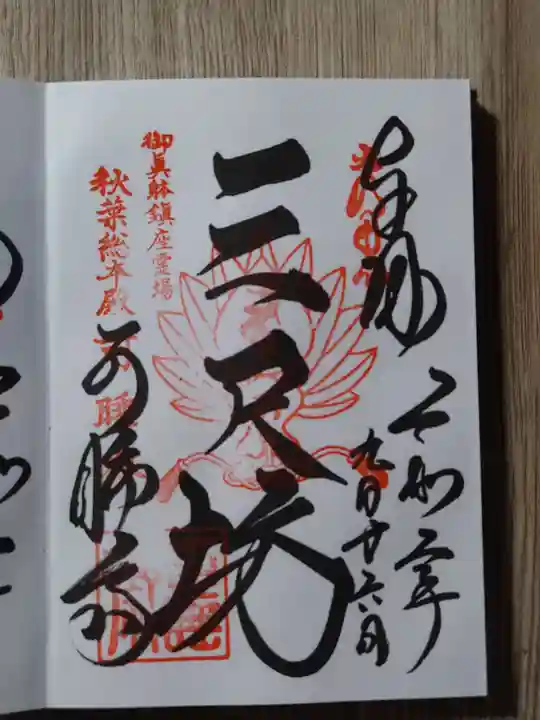 奉拝
令和二年
九月廿六日
三尺坊
御真躰鎮座霊場
秋葉総本殿
可睡斎